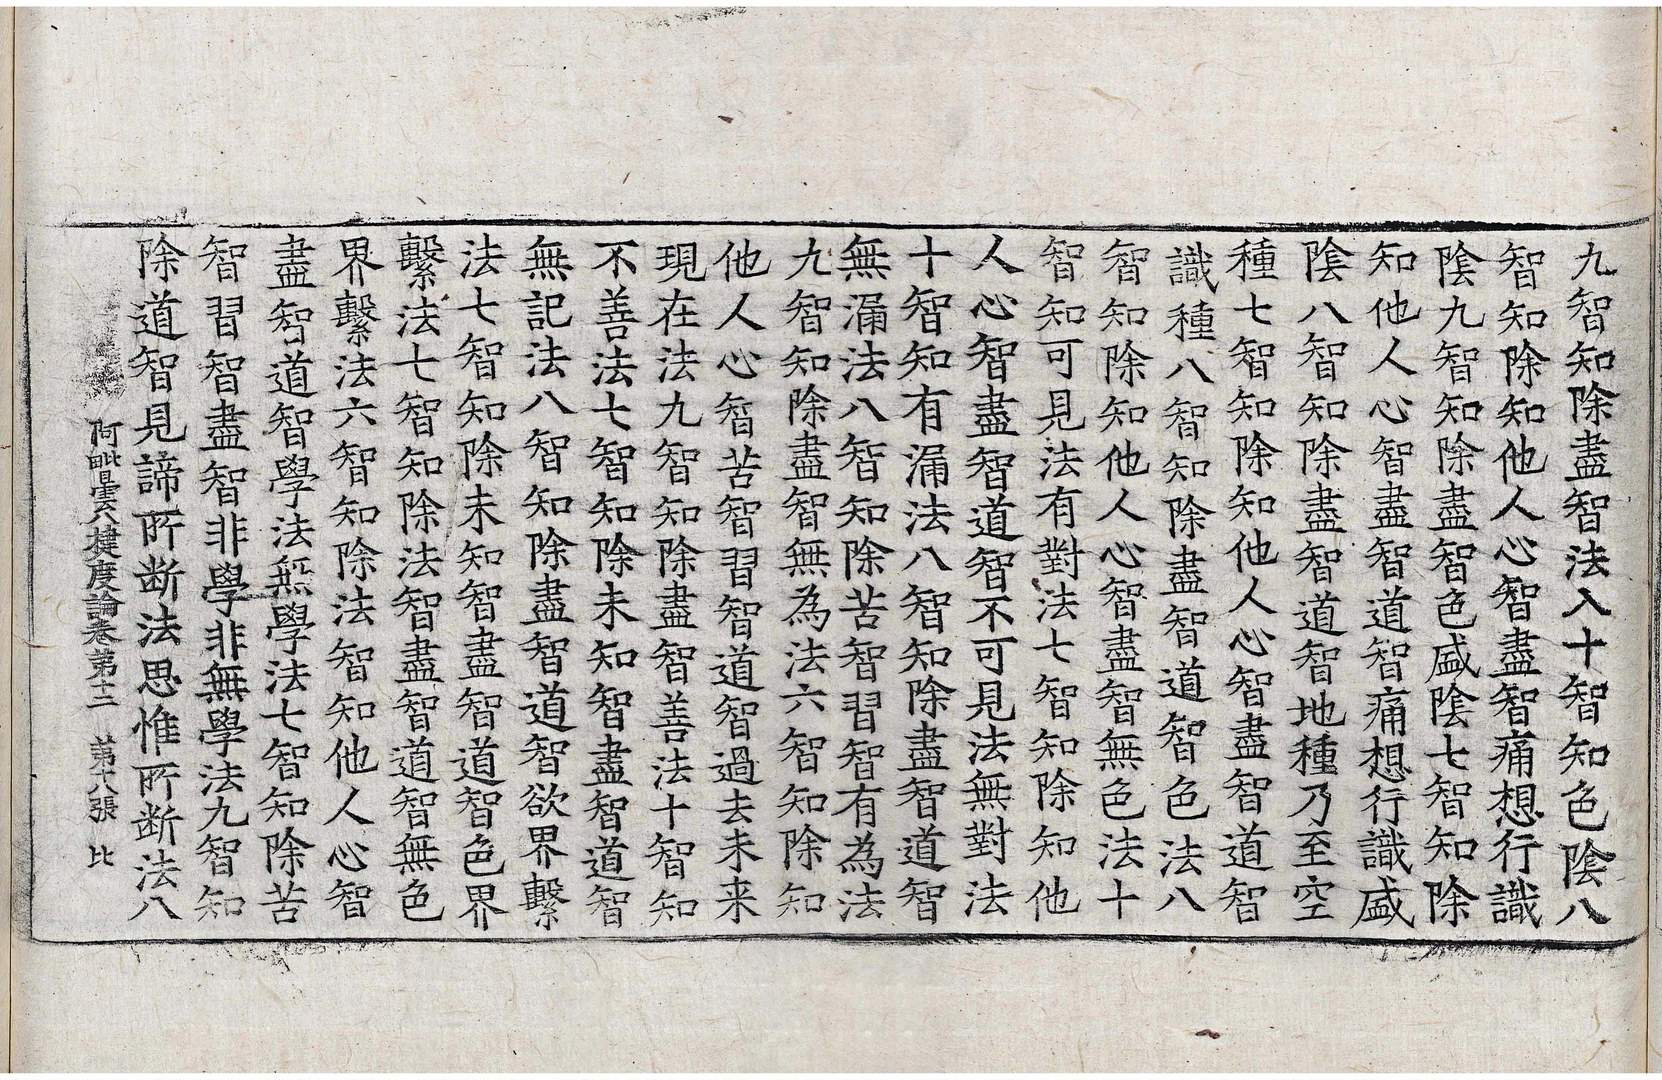 九智知除盡智法入十智知色陰八
智知除知他人心智盡智痛想行識
陰九智知除盡智色盛陰七智知除
知他人心智盡智道智痛想行識盛
陰八智知除盡智道智地種乃至空
種七智知除知他人心智盡智道智
識種八智知除盡智道智色法八
智知除知他人心智盡智無色法十
智知可見法有對法七智知除知他
人心智盡智道智不可見法無對法
十智知有漏法八智知除盡智道智
無漏法八智知除苦智習智有為法
九智知除盡智無為法六智知除知
他人心智苦智習智道智過去未来
現在法九智知除盡智善法十智知
不善法七智知除未知智盡智道智
無記法八智知除盡智道智欲界繫
法七智知除未知智盡智道智色界
繫法七智知除法智盡智道智無色
界繫法六智知除法智知他人心智
盡智道智學法無學法七智知除苦
智習智盡智非學非無學法九智知
除道智見諦所断法思惟所断法八
阿毗曇八揵度論卷第十二 第十八張 比